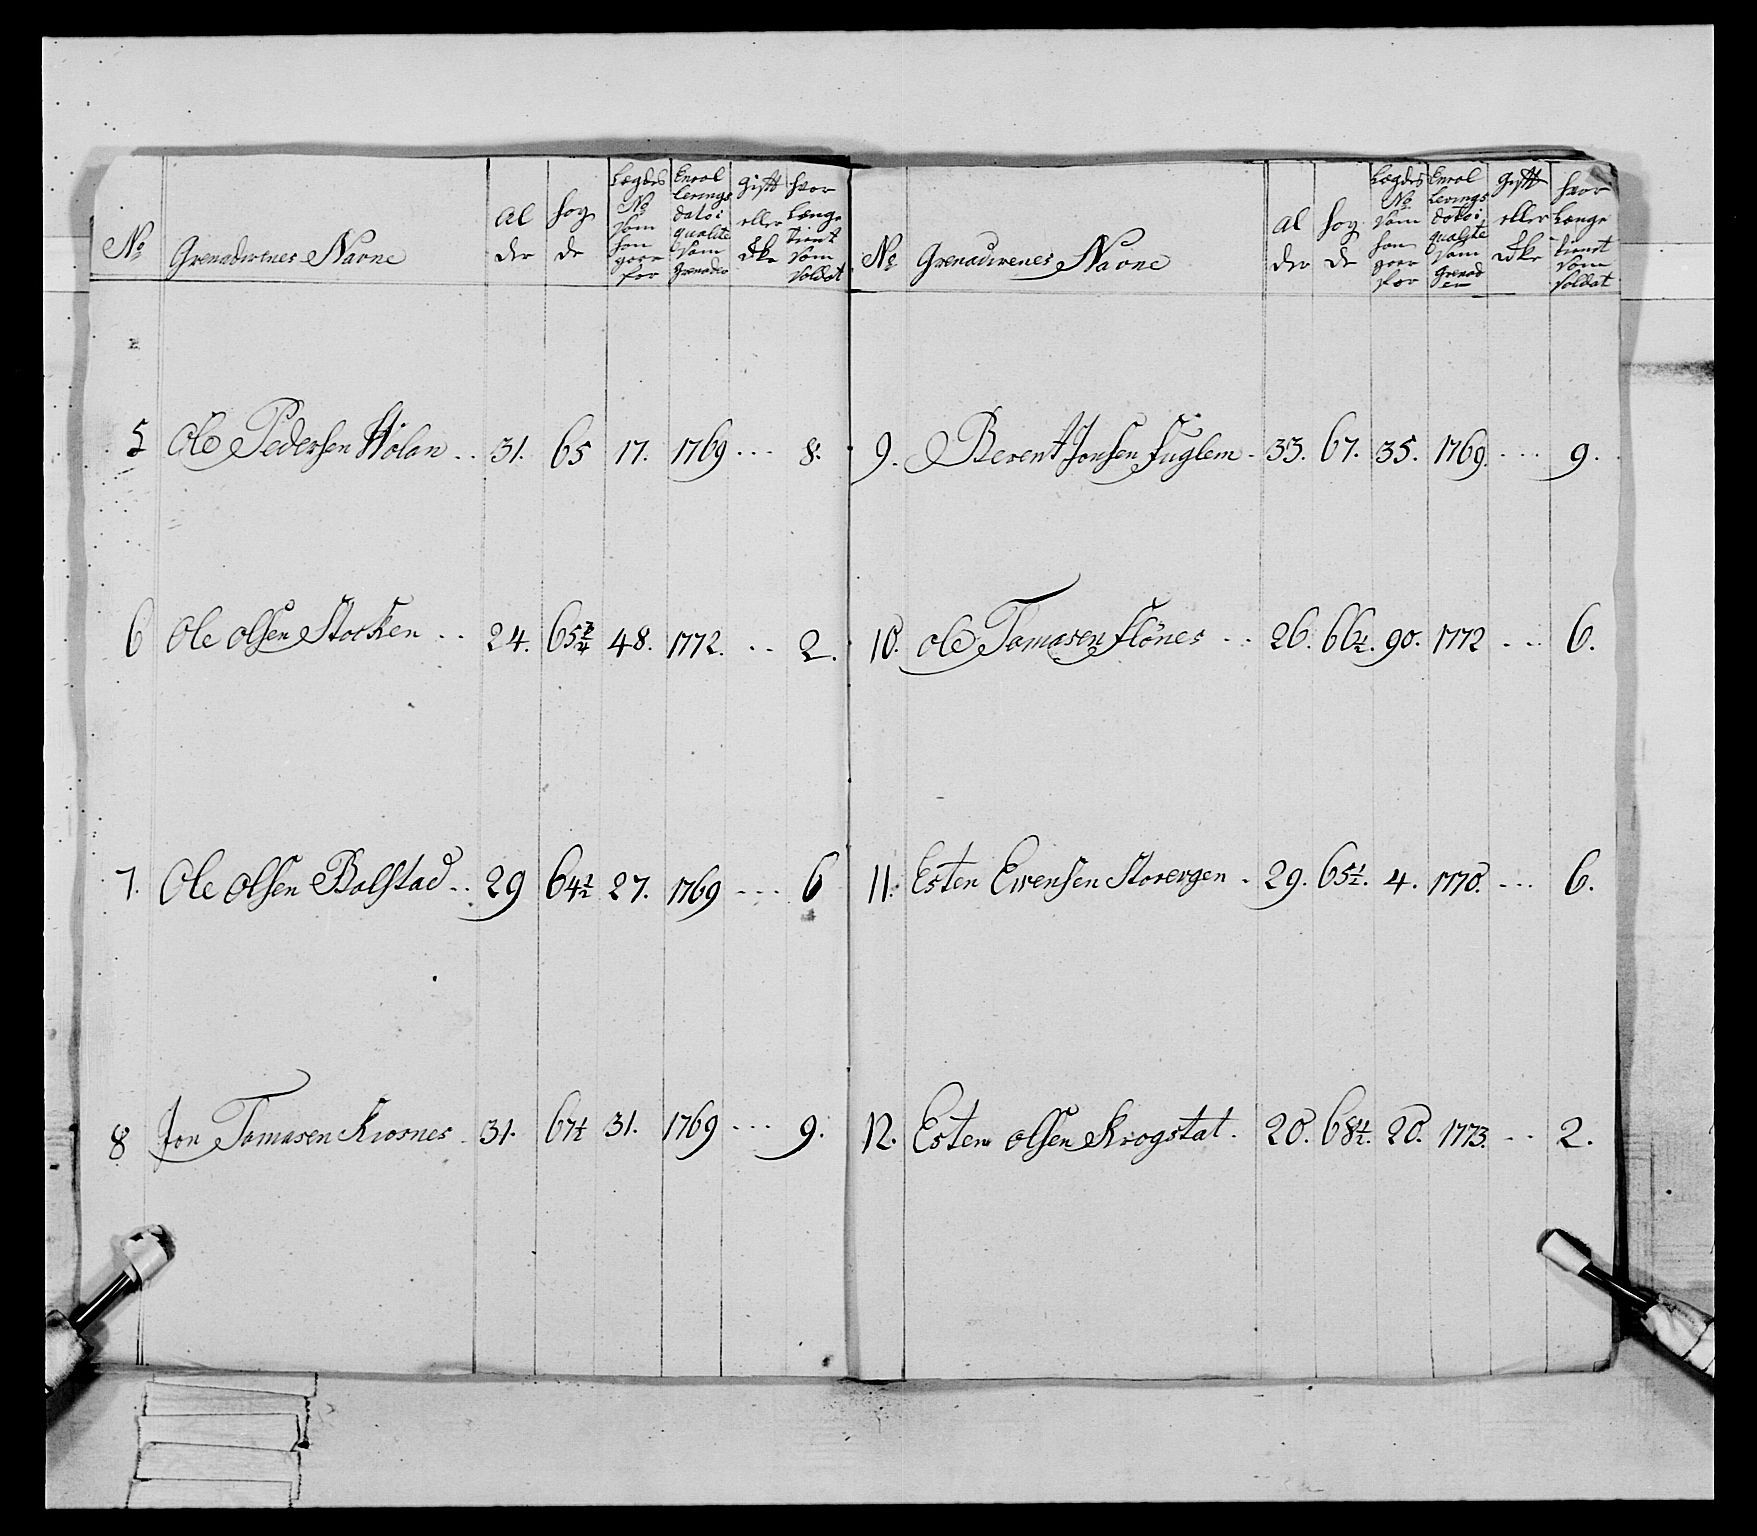 No Grenadirenes Navne Alder Hogde Lægdes No som han goer for Enrollerings dato i qualite som Grenadir Gift eller Ikke hvor Længe tient som soldat
5 Ole Pedersen Hølan .. 31. 65 17. 1769 ... 8.
6 Ole Olsen Stocken .. 24. 65 3/4 48. 1772. .. 2.
7. Ole Olsen Balstad .. 29 64 1/2 27. 1769 ... 6
8 Jon Tamasen Krosnes . 31. 67 1/2 31. 1769 ... 9.
No Grenadirenes Navne Alder Hogde Lægdes No som han goer for Enrollerings dato i qualite som Grenadeer Gift eller Ikke hvor Længe tient som soldat
9. Berent Jonsen Fuglem . 33. 67. 35. 1769. ... 9.
10. Ole Tamasen Flönes .. 26. 66 1/2. 90. 1772 ... 6.
11. Esten Evensen Storergen . 29. 65 1/2. 4. 1770. ... 6.
12. Esten Olsen Krogstat . 20. 68 1/2. 20. 1773. .. 2.